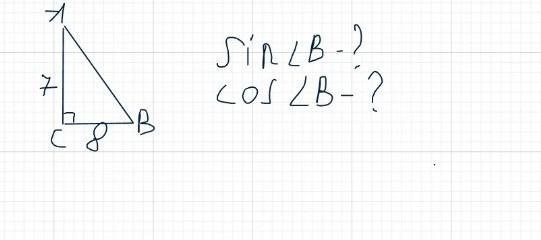 A
7
C
8
B
sin ∠B - ?
cos ∠B - ?